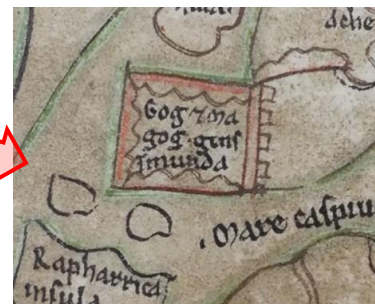 dche
Gog ⁊ Ma
gog · gens
īmunda
. Mare caspiu
Rapharrica
insula